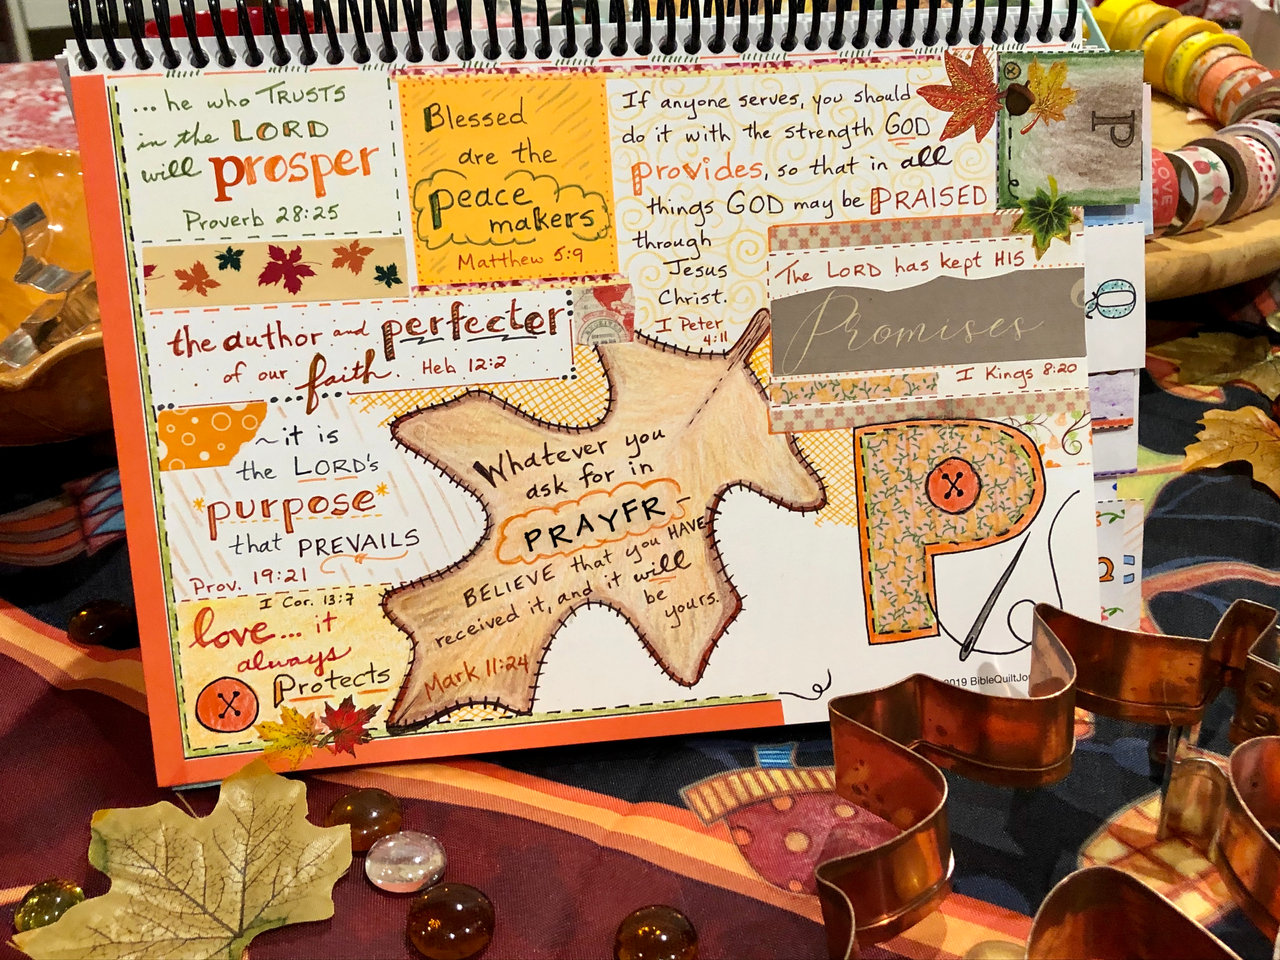 ...he who TRUSTS
in the LORD
will prosper
Proverb 28:25
Blessed
are the
peace
makers
Matthew 5:9
If anyone serves, you should
do it with the strength GOD
provides, so that in all
things GOD may be PRAISED
through
Jesus
Christ.
I Peter
4:11
P
The LORD has kept HIS
Promises
I Kings 8:20
the author and perfecter
of our faith. Heb 12:2
~it is
the LORD's
*purpose*
that PREVAILS
Prov. 19:21
I Cor. 13:7
love... it
always
Protects
Whatever you
ask for in
PRAYER-
BELIEVE that you HAVE
received it, and it will
be
yours.
Mark 11:24
P
2019 BibleQuiltJou
O
Q
LOVE